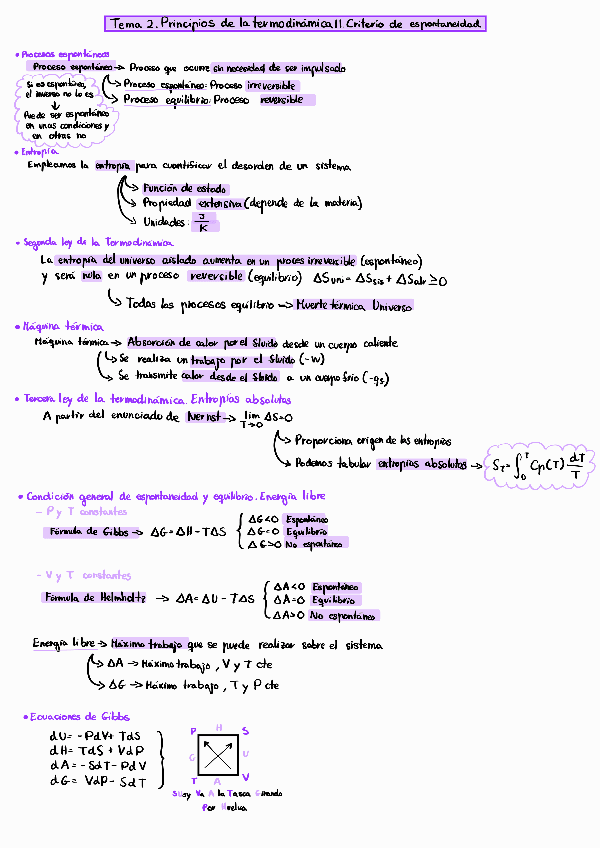 Tema 2. Principios de la termodinámica II. Criterio de espontaneidad
• Procesos espontáneos
Proceso espontáneo → Proceso que ocurre sin necesidad de ser impulsado
Proceso espontáneo: Proceso irreversible
Proceso equilibrio: Proceso reversible
Si es espontáneo,
el inverso no lo es
↓
Puede ser espontáneo
en unas condiciones y
en otras no
• Entropía
Empleamos la entropía para cuantificar el desorden de un sistema
Función de estado
Propiedad extensiva (depende de la materia)
Unidades: J/K
• Segunda ley de la Termodinámica
La entropía del universo aislado aumenta en un proces irreversible (espontáneo)
y será nula en un proceso reversible (equilibrio) ΔSuni = ΔSsis + ΔSalr ≥ 0
Todos los procesos equilibrio → Muerte térmica Universo
• Máquina térmica
Máquina térmica → Absorción de calor por el fluido desde un cuerpo caliente
Se realiza un trabajo por el fluido (-W)
Se transmite calor desde el fluido a un cuerpo frío (-qs)
• Tercera ley de la termodinámica. Entropías absolutas
A partir del enunciado de Nernst → lim T→0 ΔS=0
Proporciona origen de las entropías
Podemos tabular entropías absolutas → S_T = ∫₀ᵀ Cp(T) dT/T
• Condición general de espontaneidad y equilibrio. Energía libre
- P y T constantes
Fórmula de Gibbs → ΔG = ΔH - TΔS
ΔG<0 Espontáneo
ΔG=0 Equilibrio
ΔG>0 No espontáneo
- V y T constantes
Fórmula de Helmholtz → ΔA = ΔU - TΔS
ΔA<0 Espontáneo
ΔA=0 Equilibrio
ΔA>0 No espontáneo
Energía libre → Máximo trabajo que se puede realizar sobre el sistema
ΔA → Máximo trabajo, V y T cte
ΔG → Máximo trabajo, T y P cte
• Ecuaciones de Gibbs
dU = -PdV + TdS
dH = TdS + VdP
dA = -SdT - PdV
dG = VdP - SdT
P H S
G U
T A V
SUsy Va A la Tasca Girando
Por Huelva